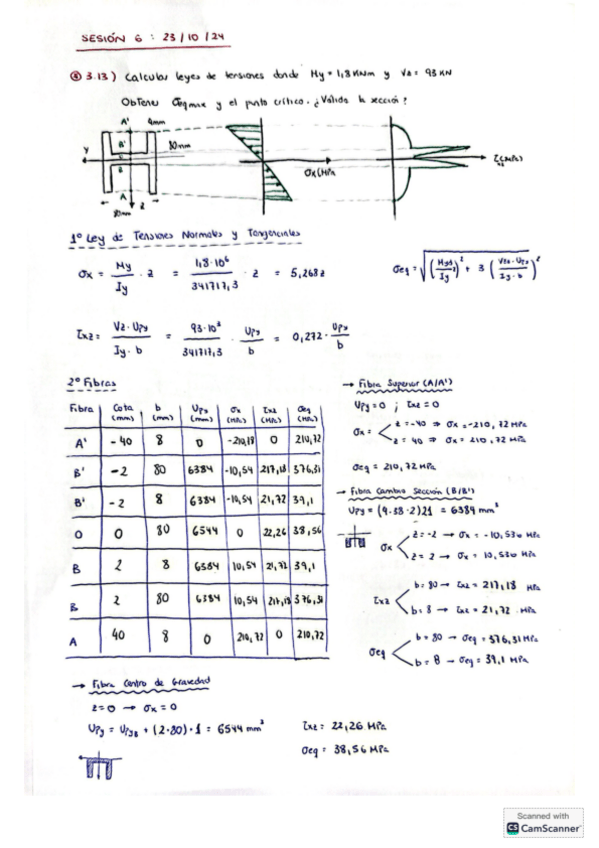 SESIÓN 6 : 23/10/24
⑧ 3.13) Calcular leyes de tensiones donde My = 1,8 KNm y Vz = 93 KN
Obtener σeq max y el punto crítico. ¿Válida la sección?
A' 4mm
B' 80mm
Y
B
A
z
80mm
σx (MPa
1º Ley de Tensiones Normales y Tangenciales
σx = My/Iy · z = 1,8·10⁶/341717,3 · z = 5,268z
σeq = √((My·z/Iy)² + 3 (Vz·Upy/Iy·b)²)
τxz = Vz·Upy/Iy·b = 93·10³/341717,3 · Upy/b = 0,272 · Upy/b
2º Fibras
Fibra | Cota (mm) | b (mm) | Upy (mm) | σx (MPa) | τxz (MPa) | σeq (MPa)
A' | -40 | 8 | 0 | -210,72 | 0 | 210,72
B' | -2 | 80 | 6384 | -10,54 | 217,18 | 376,31
B' | -2 | 8 | 6384 | -10,54 | 21,72 | 39,1
O | 0 | 80 | 6544 | 0 | 22,26 | 38,56
B | 2 | 8 | 6384 | 10,54 | 21,72 | 39,1
B | 2 | 80 | 6384 | 10,54 | 217,18 | 376,31
A | 40 | 8 | 0 | 210,72 | 0 | 210,72
→ Fibra Superior (A/A')
Upy = 0 ; τxz = 0
σx = z = -40 ⇒ σx = -210,72 MPa
z = 40 ⇒ σx = 210,72 MPa
σeq = 210,72 MPa
→ Fibra Cambio Sección (B/B')
Upy = (4·38·2)21 = 6384 mm³
σx z = -2 → σx = -10,536 MPa
z = 2 → σx = 10,536 MPa
τxz b = 80 → τxz = 217,18 MPa
b = 8 → τxz = 21,72 MPa
σeq b = 80 → σeq = 376,31 MPa
b = 8 → σeq = 39,1 MPa
→ Fibra Centro de Gravedad
z = 0 → σx = 0
Upy = UpyB + (2·80)·1 = 6544 mm³
τxz = 22,26 MPa
σeq = 38,56 MPa
Scanned with
CS CamScanner